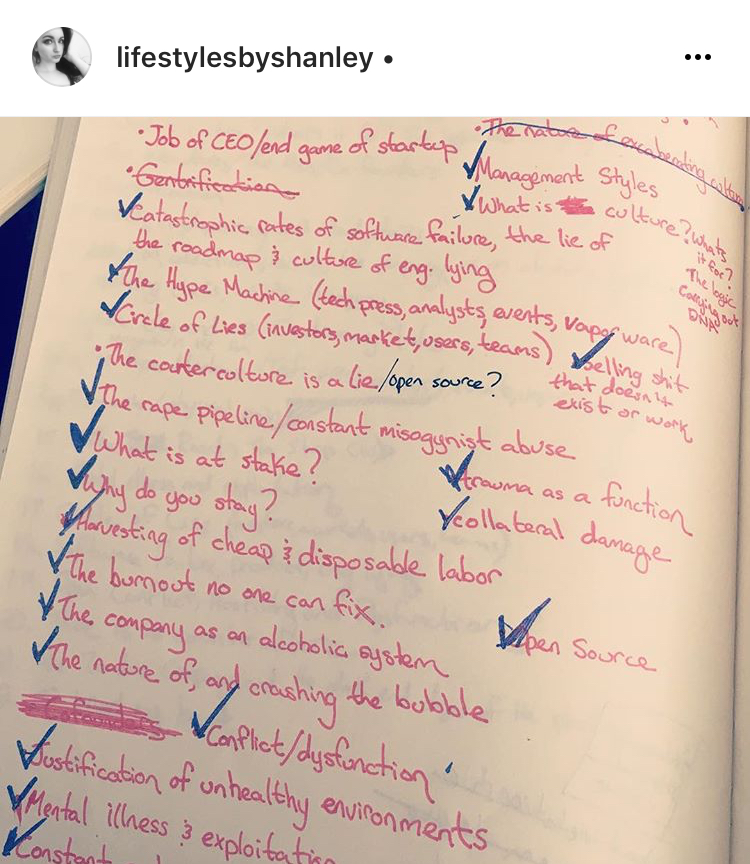 lifestylesbyshanley •
• Job of CEO/end game of startup
• Gentrification
✓ Catastrophic rates of software failure, the lie of
the roadmap & culture of eng. lying
✓ The Hype Machine (tech press, analysts, events, vaporware)
✓ Circle of Lies (investors, market, users, teams)
• The couterculture is a lie/open source?
✓ The rape pipeline/constant misogynist abuse
✓ What is at stake?
✓ Why do you stay?
✓ Harvesting of cheap & disposable labor
✓ The burnout no one can fix.
✓ The company as an alcoholic system
✓ The nature of, and crashing the bubble
✓ Conflict/dysfunction
✓ Justification of unhealthy environments
✓ Mental illness & exploitation
✓ Constant
• The nature of
✓ Management Styles
✓ What is culture? What's
it for?
The logic
Carrying out
DNA
✓ Selling shit
that doesn't
exist or work
✓ trauma as a function
✓ collateral damage
✓ Open Source